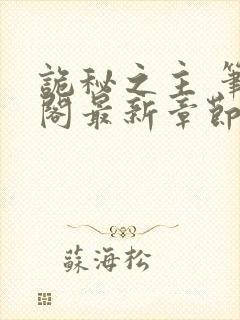 詭秘之主 筆
閣最新章節
蘇海松